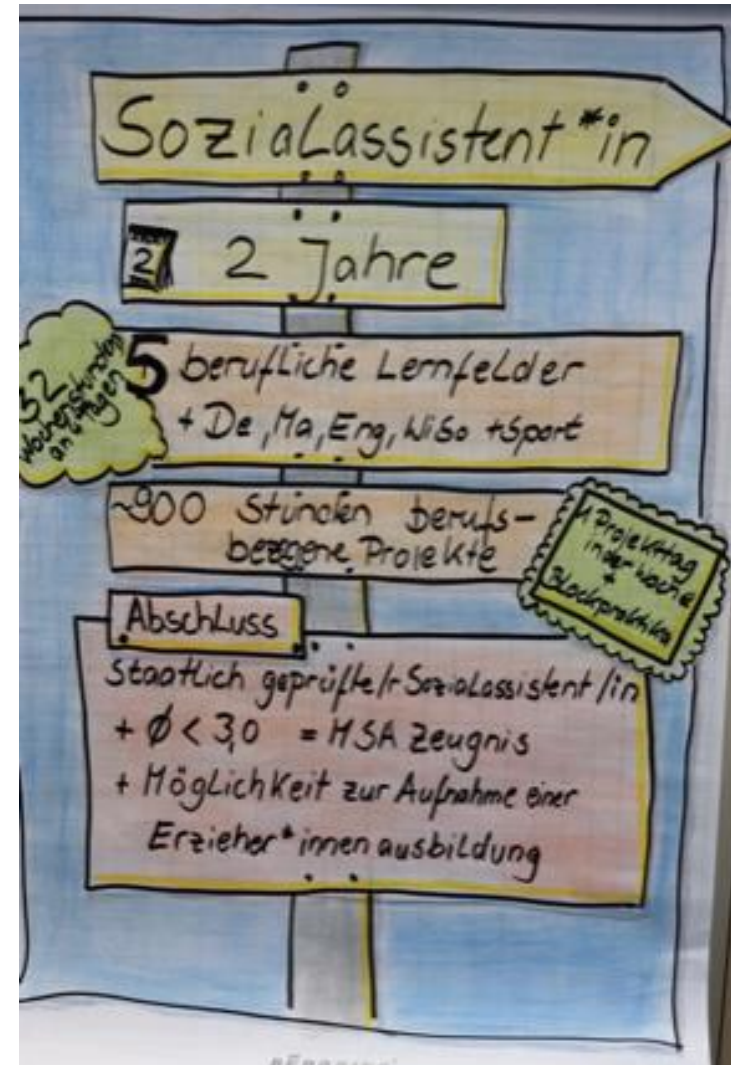 Sozialassistent*in
2
2 Jahre
32
Wochenstunden
an 4 Tagen
5 berufliche Lernfelder
+ De, Ma, Eng, WiSo + Sport
~900 Stunden berufs-
bezogene Projekte
1 Projekttag
in der Woche
+
Blockpraktika
Abschluss
Staatlich geprüfte/r Sozialassistent/in
+ Ø < 3,0 = MSA Zeugnis
+ Möglichkeit zur Aufnahme einer
Erzieher*innenausbildung